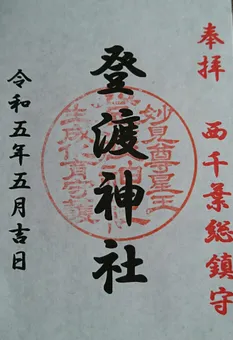 奉拝
西千葉総鎮守
登渡神社
令和五年五月吉日
妙見尊星王